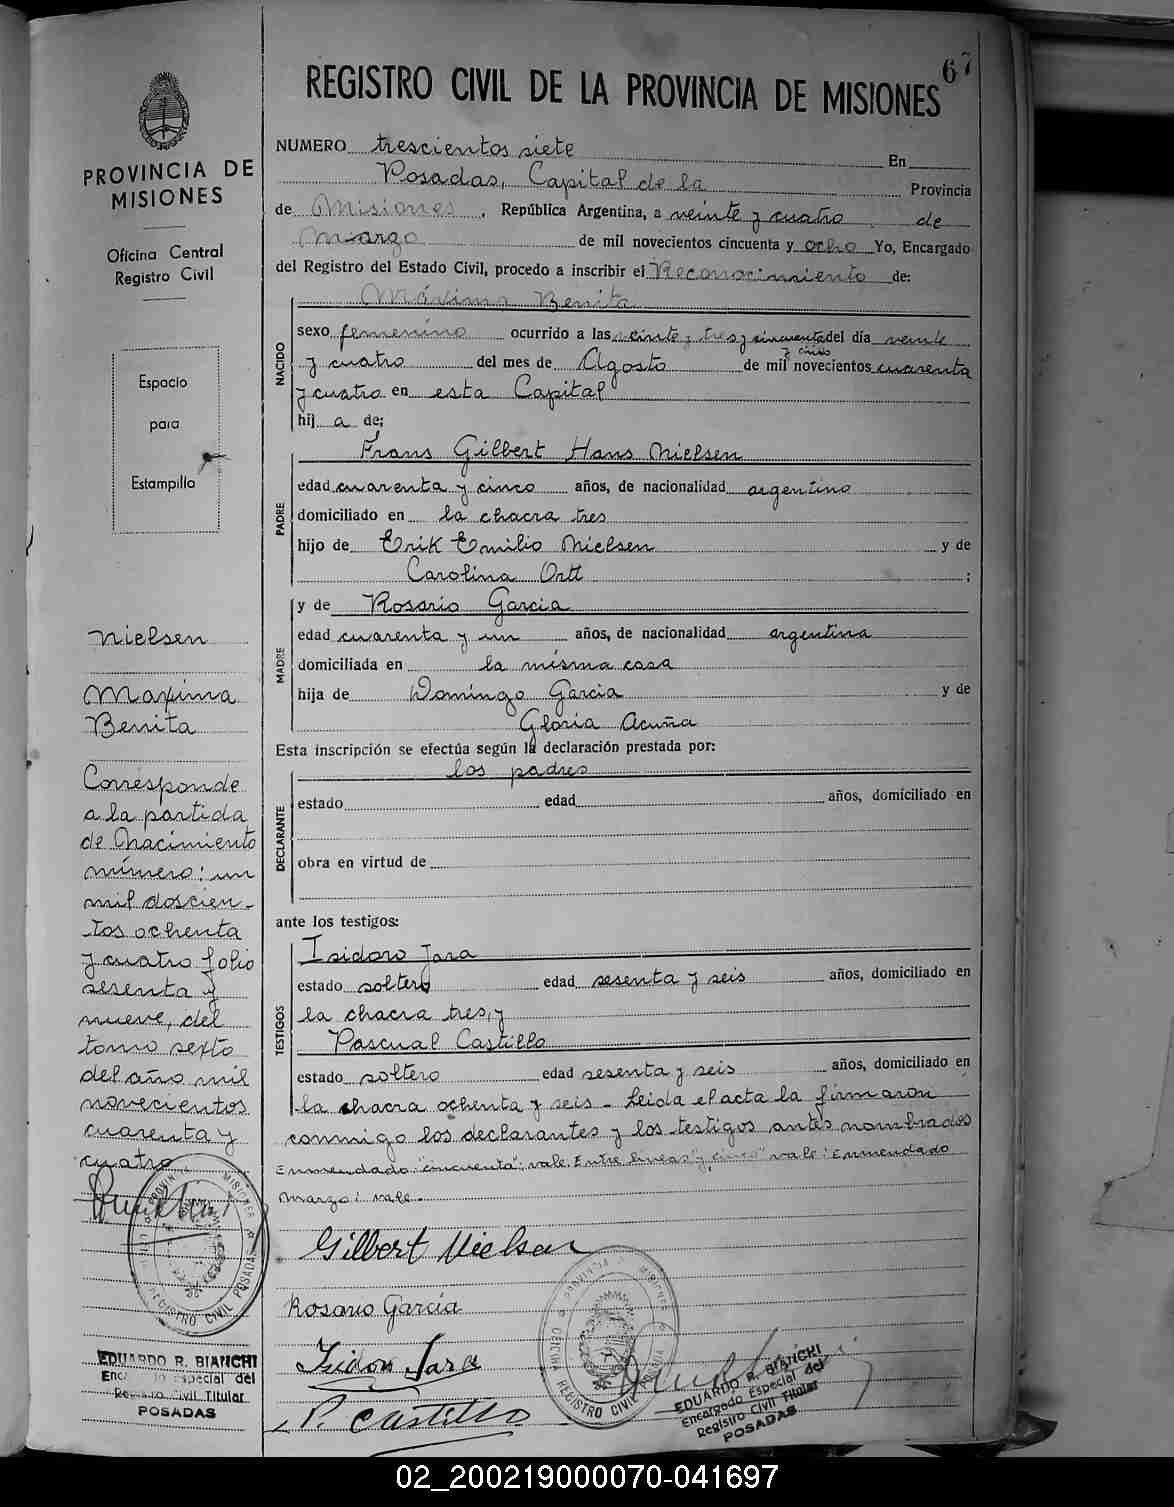 67
REGISTRO CIVIL DE LA PROVINCIA DE MISIONES
PROVINCIA DE
MISIONES
Oficina Central
Registro Civil
Espacio
para
Estampilla
Nielsen
Maxima
Benita
Corresponde
a la partida
de Nacimiento
número: un
mil doscien-
tos ochenta
y cuatro folio
sesenta y
nueve, del
tomo sexto
del año mil
novecientos
cuarenta y
cuatro
EDUARDO R. BIANCHI
Encargado Especial del
Registro Civil Titular
POSADAS
NUMERO trescientos siete En
Posadas, Capital de la Provincia
de Misiones, República Argentina, a veinte y cuatro de
Marzo de mil novecientos cincuenta y ocho Yo, Encargado
del Registro del Estado Civil, procedo a inscribir el Reconocimiento de:
Máxima Benita
NACIDO
sexo femenino ocurrido a las veinte y tres y cincuenta del día veinte
y cinco
y cuatro del mes de Agosto de mil novecientos cuarenta
y cuatro en esta Capital
hij a de;
PADRE
Frans Gilbert Hans Nielsen
edad cuarenta y cinco años, de nacionalidad argentino
domiciliado en la chacra tres
hijo de Erik Emilio Nielsen y de
Carolina Ortt ;
MADRE
y de Rosario Garcia
edad cuarenta y un años, de nacionalidad argentina
domiciliada en la misma casa
hija de Domingo Garcia y de
Gloria Acuña
Esta inscripción se efectúa según la declaración prestada por:
DECLARANTE
los padres
estado edad años, domiciliado en
obra en virtud de
ante los testigos:
TESTIGOS
Isidoro Jara
estado soltero edad sesenta y seis años, domiciliado en
la chacra tres, y
Pascual Castillo
estado soltero edad sesenta y seis años, domiciliado en
la chacra ochenta y seis - Leida el acta la firmaron
conmigo los declarantes y los testigos antes nombrados
Enmendado: "cincuenta": vale. Entre lineas "y cinco" vale: Enmendado
marzo: vale.
Gilbert Nielsen
Rosario Garcia
Isidoro Jara
P. Castillo
OFICINA REGISTRO CIVIL POSADAS
PROVINCIA MISIONES
EDUARDO R. BIANCHI
Encargado Especial del
Registro Civil Titular
POSADAS
02_200219000070-041697